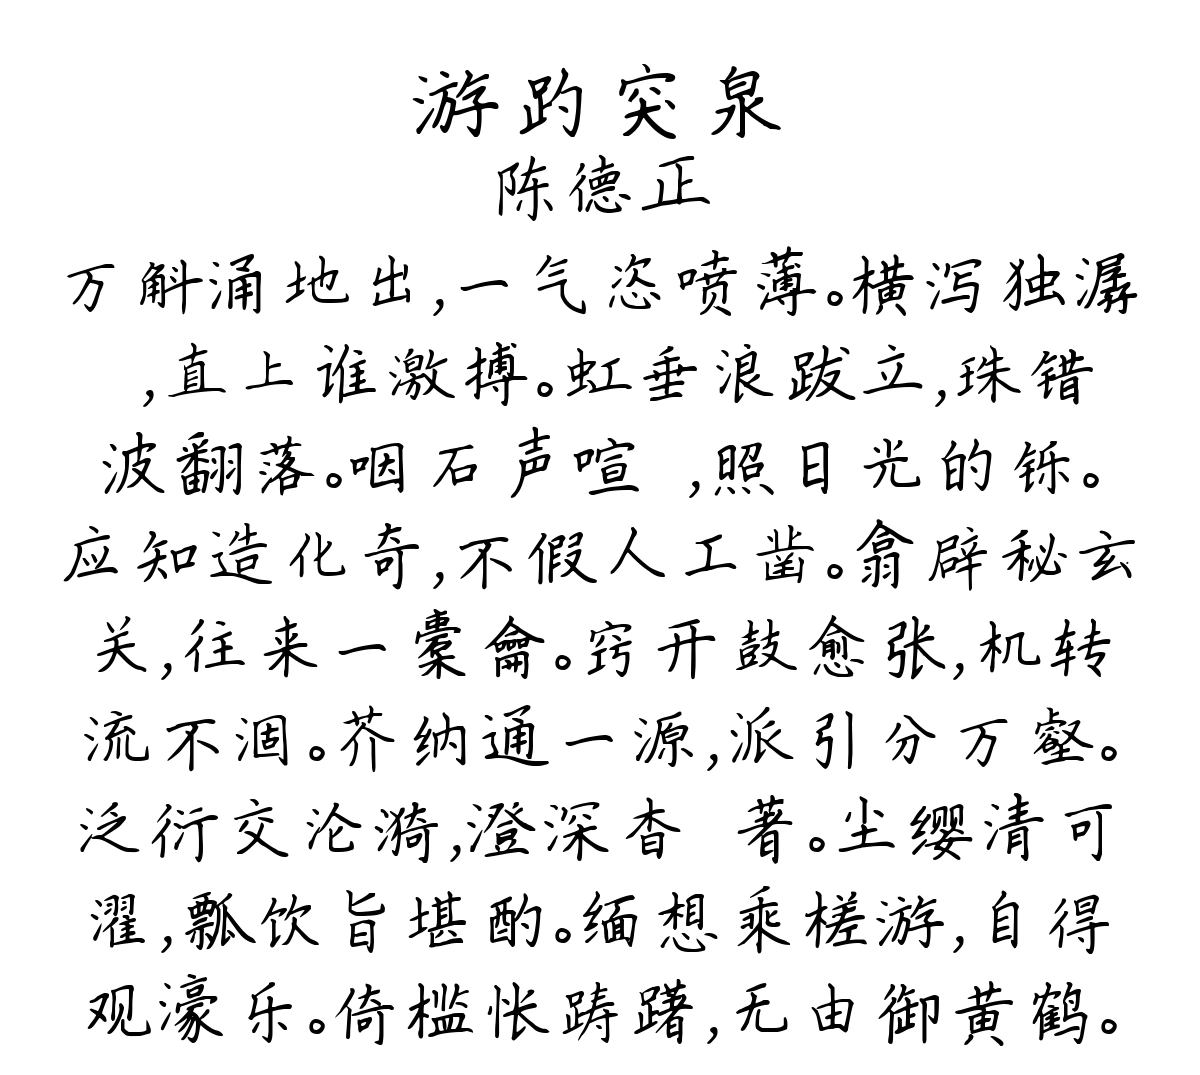 游趵突泉
陈德正
万斛涌地出,一气恣喷薄。横泻独潺
,直上谁激搏。虹垂浪跋立,珠错
波翻落。咽石声喧 ,照日光的铄。
应知造化奇,不假人工凿。翕辟秘玄
关,往来一橐龠。窍开鼓愈张,机转
流不涸。芥纳通一源,派引分万壑。
泛衍交沦漪,澄深杳 著。尘缨清可
濯,瓢饮旨堪酌。缅想乘槎游,自得
观濠乐。倚槛怅踌躇,无由御黄鹤。